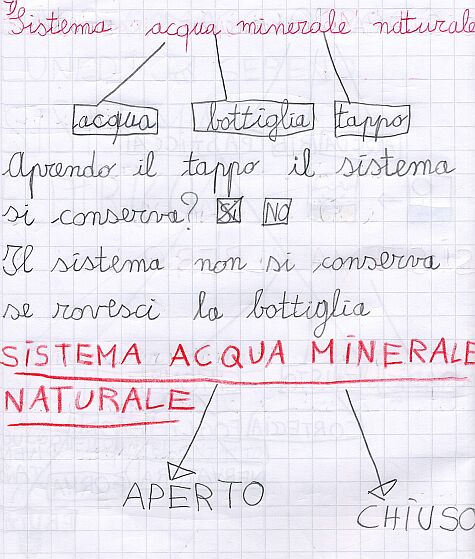 Sistema acqua minerale naturale
acqua bottiglia tappo
Aprendo il tappo il sistema
si conserva? Si No
Il sistema non si conserva
se rovesci la bottiglia
SiSTEMA ACQUA MiNERALE
NATURALE
APERTO
CHiUSO